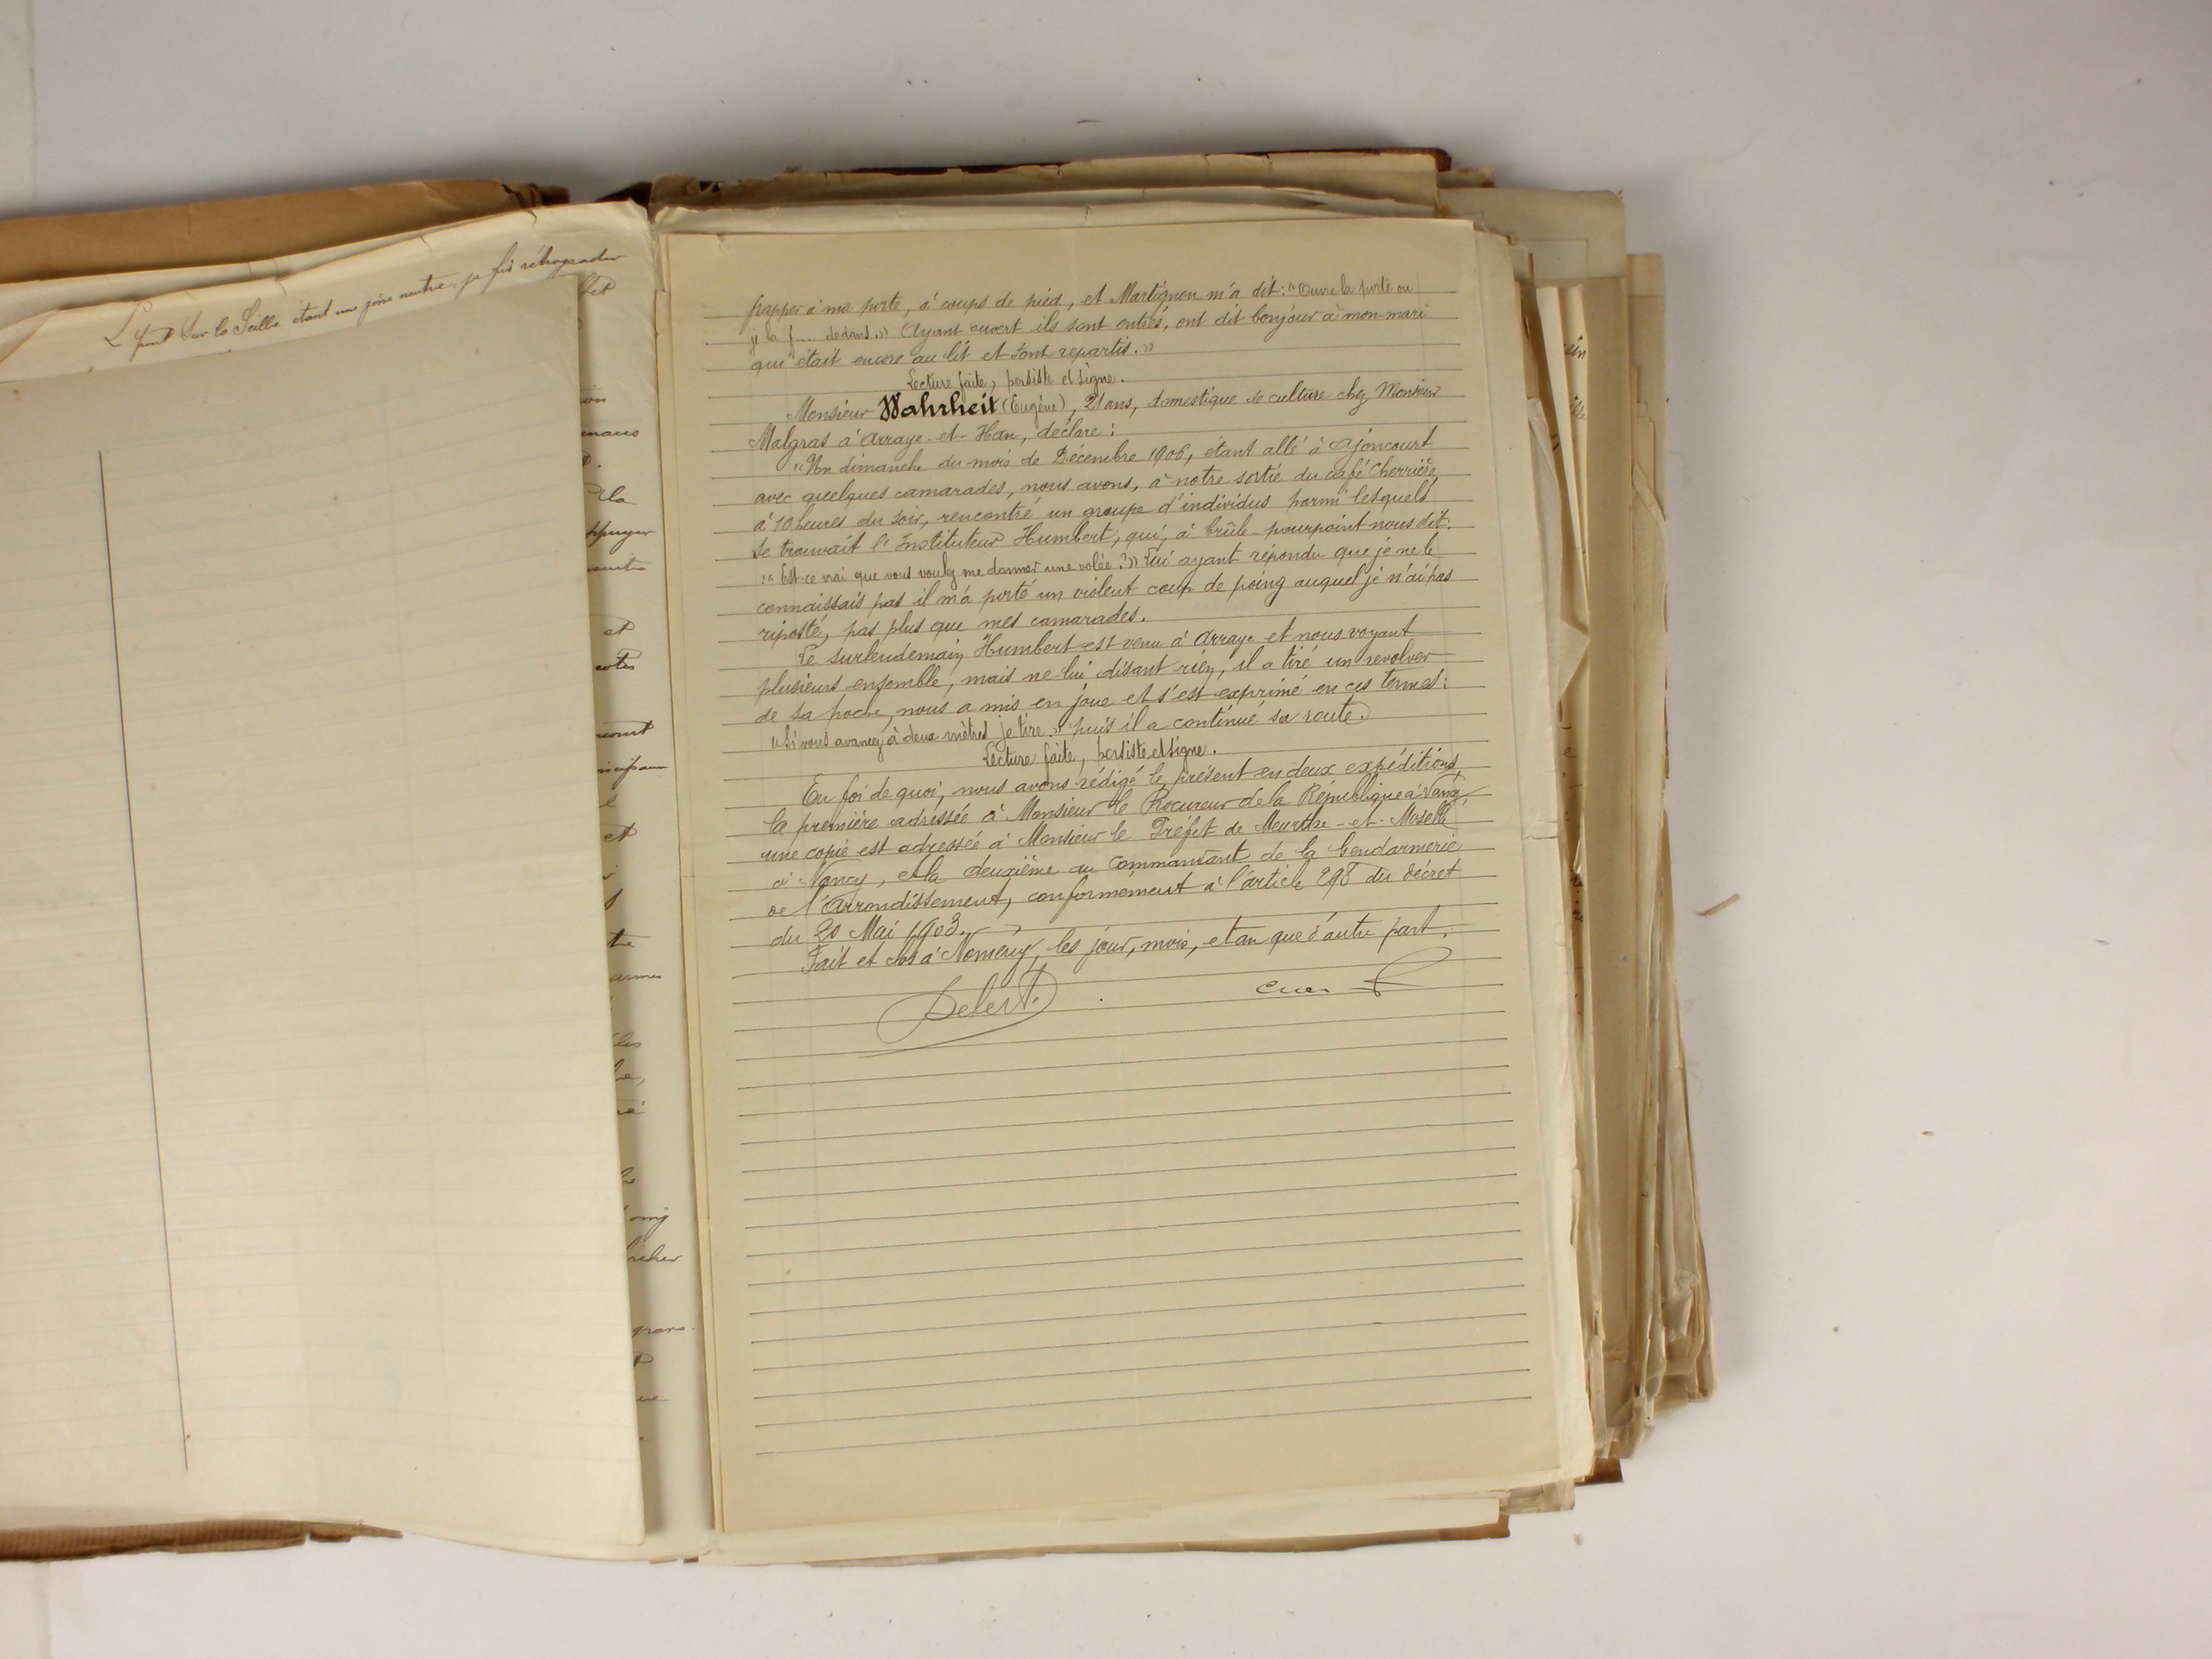 Le pont sur la Seille étant une zône neutre, je fis rétrograder
et
la
et
et
tre
les
frapper à ma porte, à coups de pied, et Martignon m'a dit: "Ouvre la porte ou
je la f.... dedans." Ayant ouvert ils sont entrés, ont dit bonjour à mon mari
qui était encore au lit et sont repartis."
Lecture faite, persiste et signe.
Monsieur Wahrheit (Eugène), 21 ans, domestique de culture chez Monsieur
Malgras à Arraye-et-Han, déclare:
"Un dimanche du mois de Décembre 1906, étant allé à Ajoncourt
avec quelques camarades, nous avons, à notre sortie du café Cherrière,
à 10 heures du soir, rencontré un groupe d'individus parmi lesquels
se trouvait l'Instituteur Humbert, qui, à brûle-pourpoint nous dit:
:" Est-ce vrai que vous voulez me donner une volée?" Lui ayant répondu que je ne le
connaissais pas il m'a porté un violent coup de poing auquel je n'ai pas
riposté, pas plus que mes camarades.
Le surlendemain Humbert est venu à Arraye et nous voyant
plusieurs ensemble, mais ne lui disant rien, il a tiré un revolver
de sa poche, nous a mis en joue et s'est exprimé en ces termes:
"Si vous avancez à deux mètres je tire." puis il a continué sa route.
Lecture faite, persiste et signe.
En foi de quoi, nous avons rédigé le présent en deux expéditions
la première adressée à Monsieur le Procureur de la République à Nancy,
une copie est adressée à Monsieur le Préfet de Meurthe-et-Moselle
à Nancy, et la deuxième au Commandant de la Gendarmerie
de l'Arrondissement, conformément à l'article 298 du décret
du 20 Mai 1903.
Fait et clos à Nomeny, les jour, mois, et an que d'autre part.